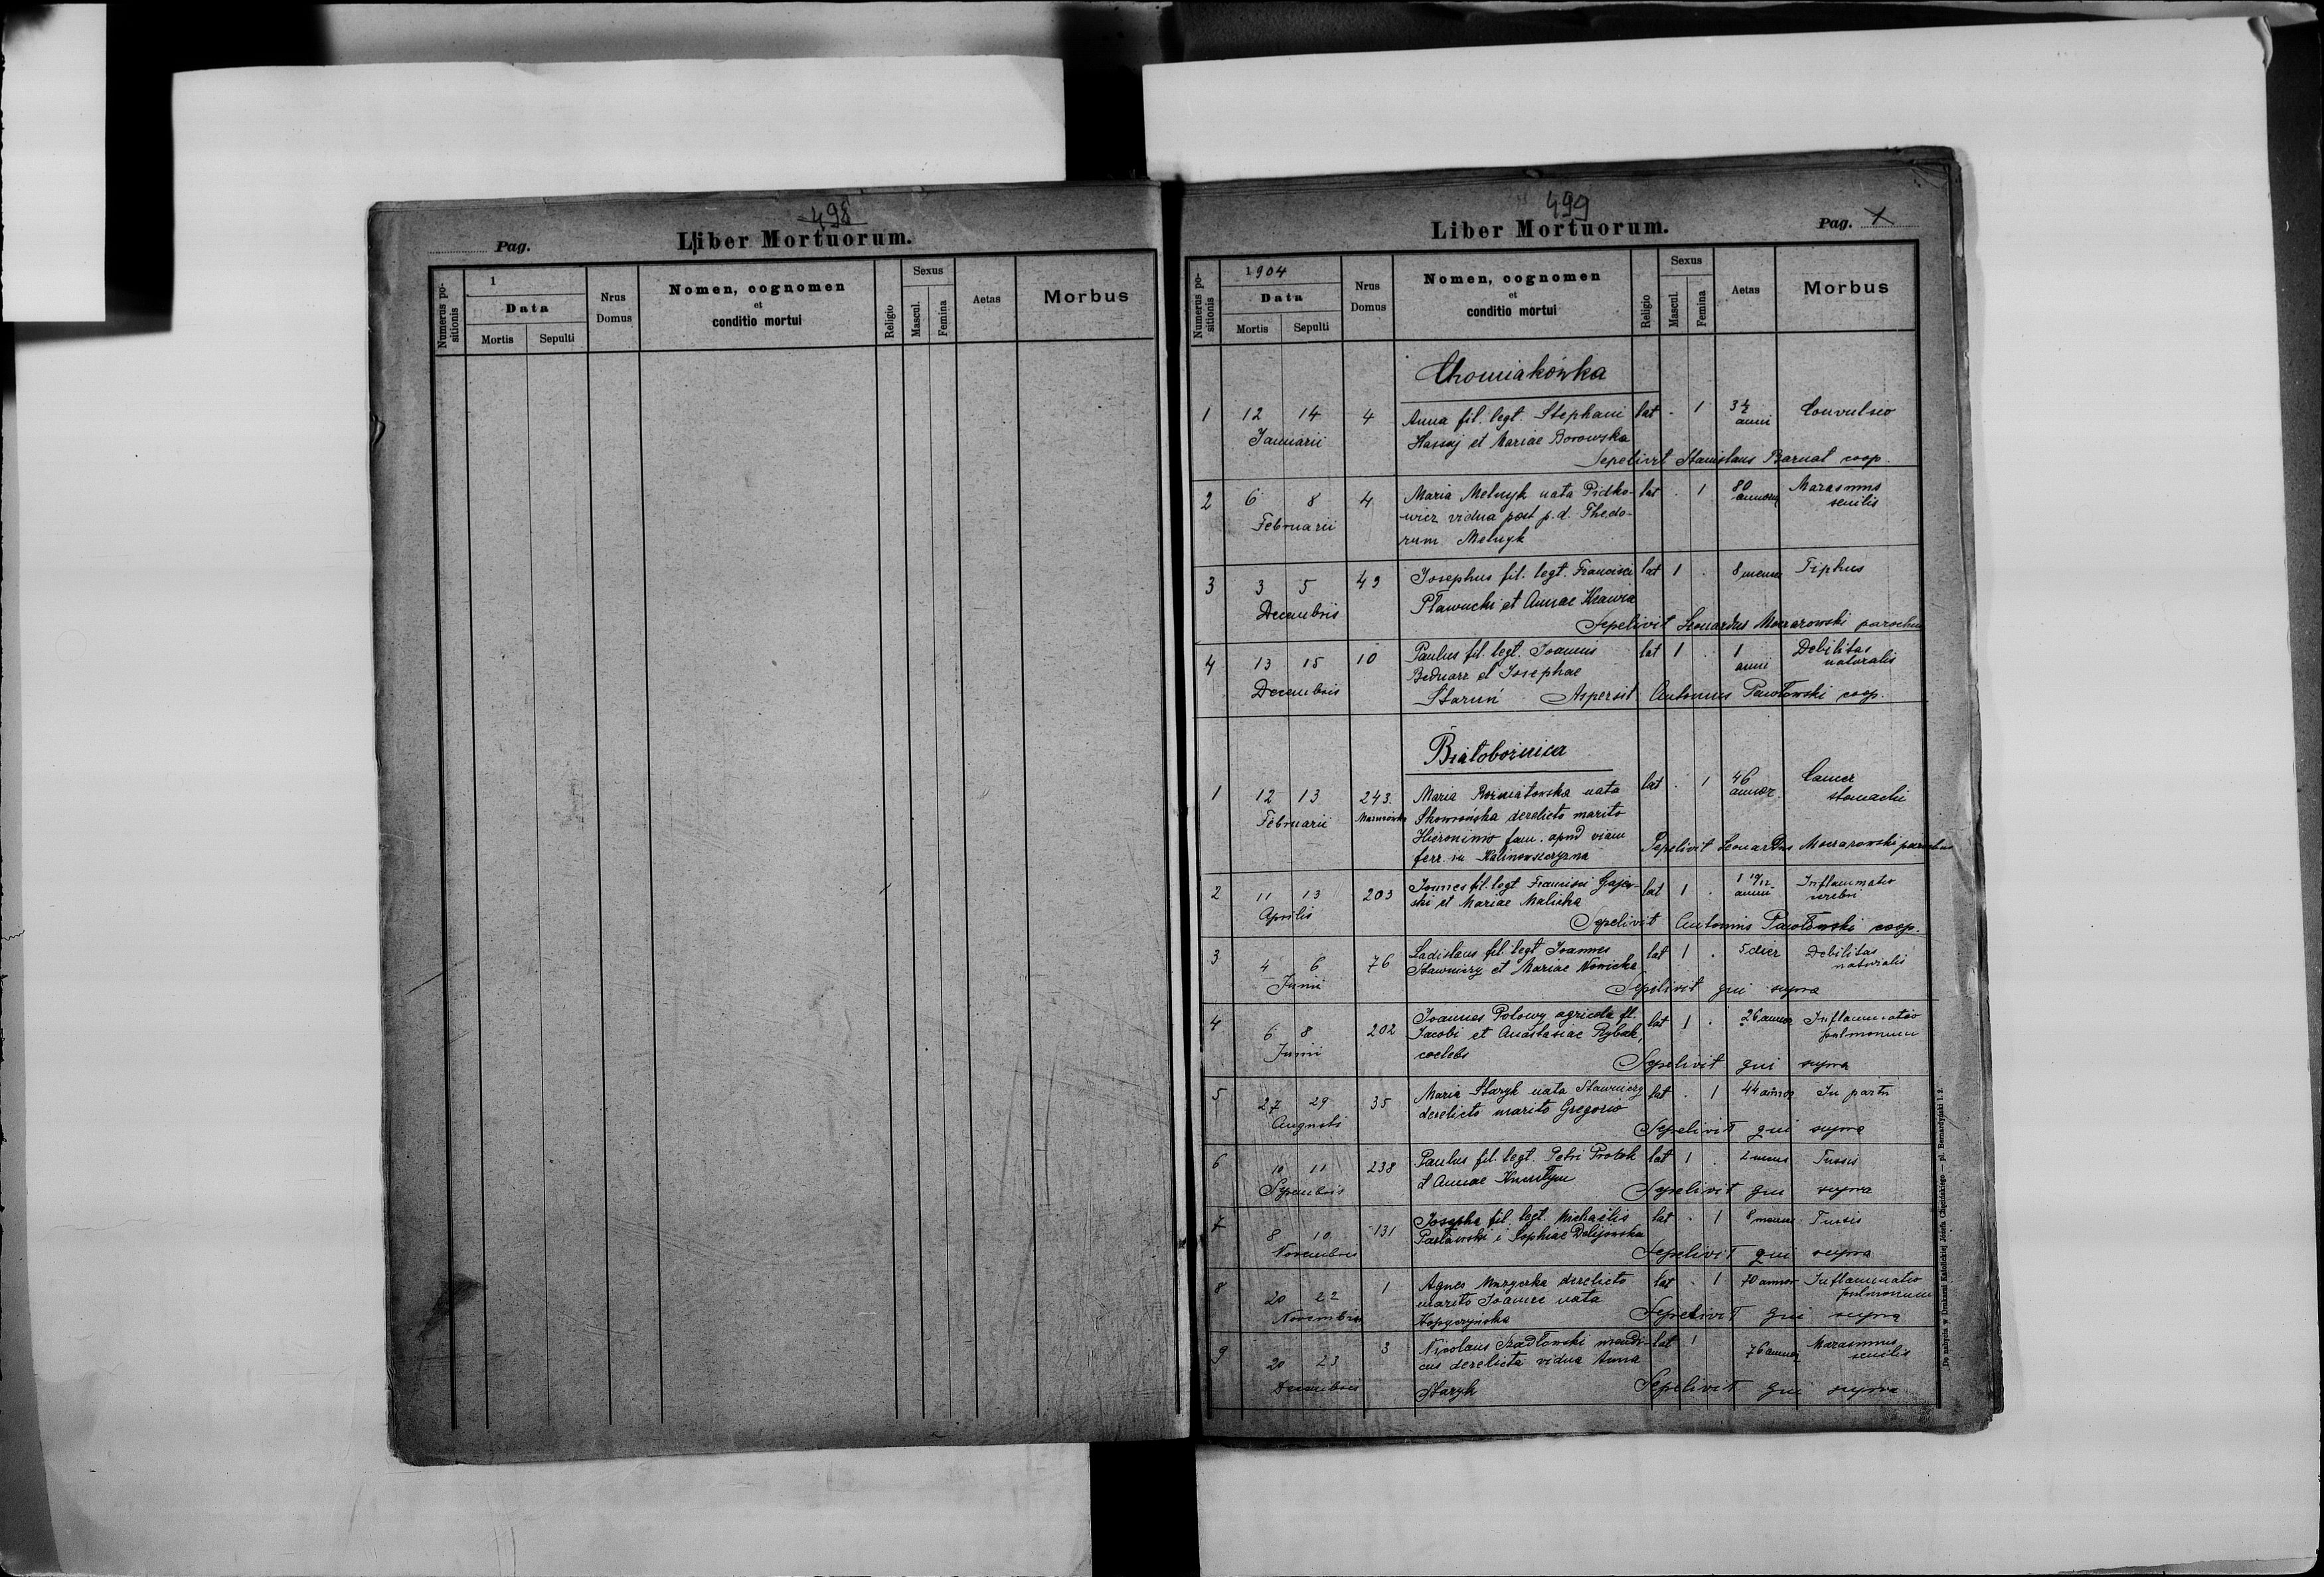 498
Pag.
Liber Mortuorum.
Numerus positionis
1
Data
Mortis
Sepulti
Nrus Domus
Nomen, cognomen
et
conditio mortui
Religio
Sexus
Mascul.
Femina
Aetas
Morbus
499
Liber Mortuorum.
Pag. X
Numerus positionis
1904
Data
Mortis
Sepulti
Nrus Domus
Nomen, cognomen
et
conditio mortui
Religio
Sexus
Mascul.
Femina
Aetas
Morbus
Chomiakówka
1 12 14 4 Anna fil. legt. Stephani lat . 1 3½ Convulsio
Januarii Hassaj et Mariae Borowska anni
Sepelivit Stanislaus Barnat coop.
2 6 8 4 Maria Melnyk nata Pidko- lat . 1 80 Marasmus
Februarii wicz vidua post p. d. Thedo- annorum senilis
rum Melnyk
3 3 5 49 Josephus fil. legt. Francisci lat 1 . 8 menses Tiphus
Decembris et Annae
Sepelivit Leonardus Moczarowski parochus
4 13 15 10 Paulus fil. legt. Joannis lat 1 . 1 Debilitas
Decembris Bednarz et Josephae anni naturalis
Staruń Aspersit Antonius Pawłowski coop.
Białobożnica
1 12 13 243. Maria Rożniatowska nata lat . 1 46 Cancer
Februarii Mazurówka Skowrońska derelicto marito annor. stomachi
Hieronimo fam. apud viam
ferr. in Kalinowszczyzna Sepelivit Leonardus Moczarowski parochus
2 11 13 203 Joannes fil. legt Francisci Gajew- lat 1 . 1 10/12 Inflammatio
Aprilis ski et Mariae Malicka anni cerebri
Sepelivit Antonius Pawłowski coop.
3 4 6 76 Ladislaus fil. legt Joannes lat 1 . 5 dier Debilitas
Junii Sławniczy et Mariae Nowicka naturalis
Sepelivit qui supra
4 6 8 202 Joannes Polowy agricola fl. lat 1 . 26 annor Inflammatio
Junii Jacobi et Anastasiae Rybak, pulmonum
coelebs Sepelivit qui supra
5 27 29 35 Maria Staryk nata Sławniczy lat . 1 44 annor In partu
Augusti derelicto marito Gregorio
Sepelivit qui supra
6 10 11 238 Paulus fil. legt. Petri Protok lat 1 . 2 mens Tussis
et Annae
Sepelivit qui supra
7 8 10 131 Josepha fil. legt. Michaelis lat . 1 8 mens Tussis
Novembris Pasławski i Sophiae
Sepelivit qui supra
8 20 22 1 Agnes derelicto lat . 1 70 annor Inflammatio
Novembris marito Joanne nata pulmonum
Kopyczyńska Sepelivit qui supra
9 20 23 3 Nicolaus Szadłowski mendi- lat 1 76 annor Marasmus
Decembris cus derelicta vidua Anna senilis
Staryk Sepelivit qui supra
Do nabycia w Drukarni Katolickiej Józefa Chęcińskiego — pl. Bernardyński l. 2.